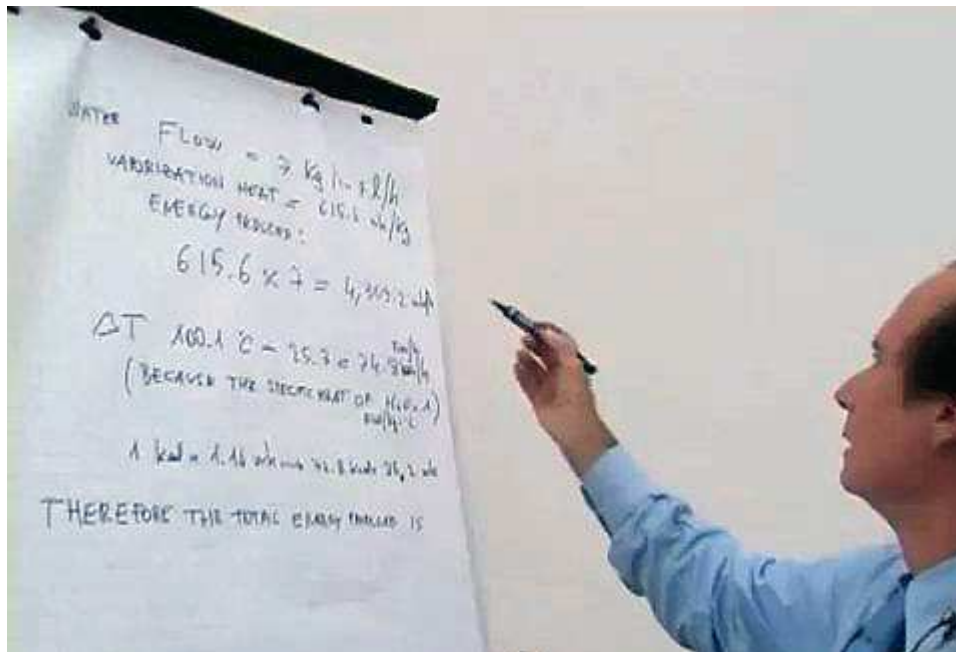 WATER FLOW = 7 Kg/h = 7 l/h
VAPORIZATION HEAT = 615.6 wh/Kg
ENERGY PRODUCED:
615.6 x 7 = 4,309.2 wh/h
ΔT 100.1 °C - 25.3 = 74.8
(BECAUSE THE SPECIFIC HEAT OF H₂O = 1)
1 kcal = 1.16 wh
THEREFORE THE TOTAL ENERGY PRODUCED IS